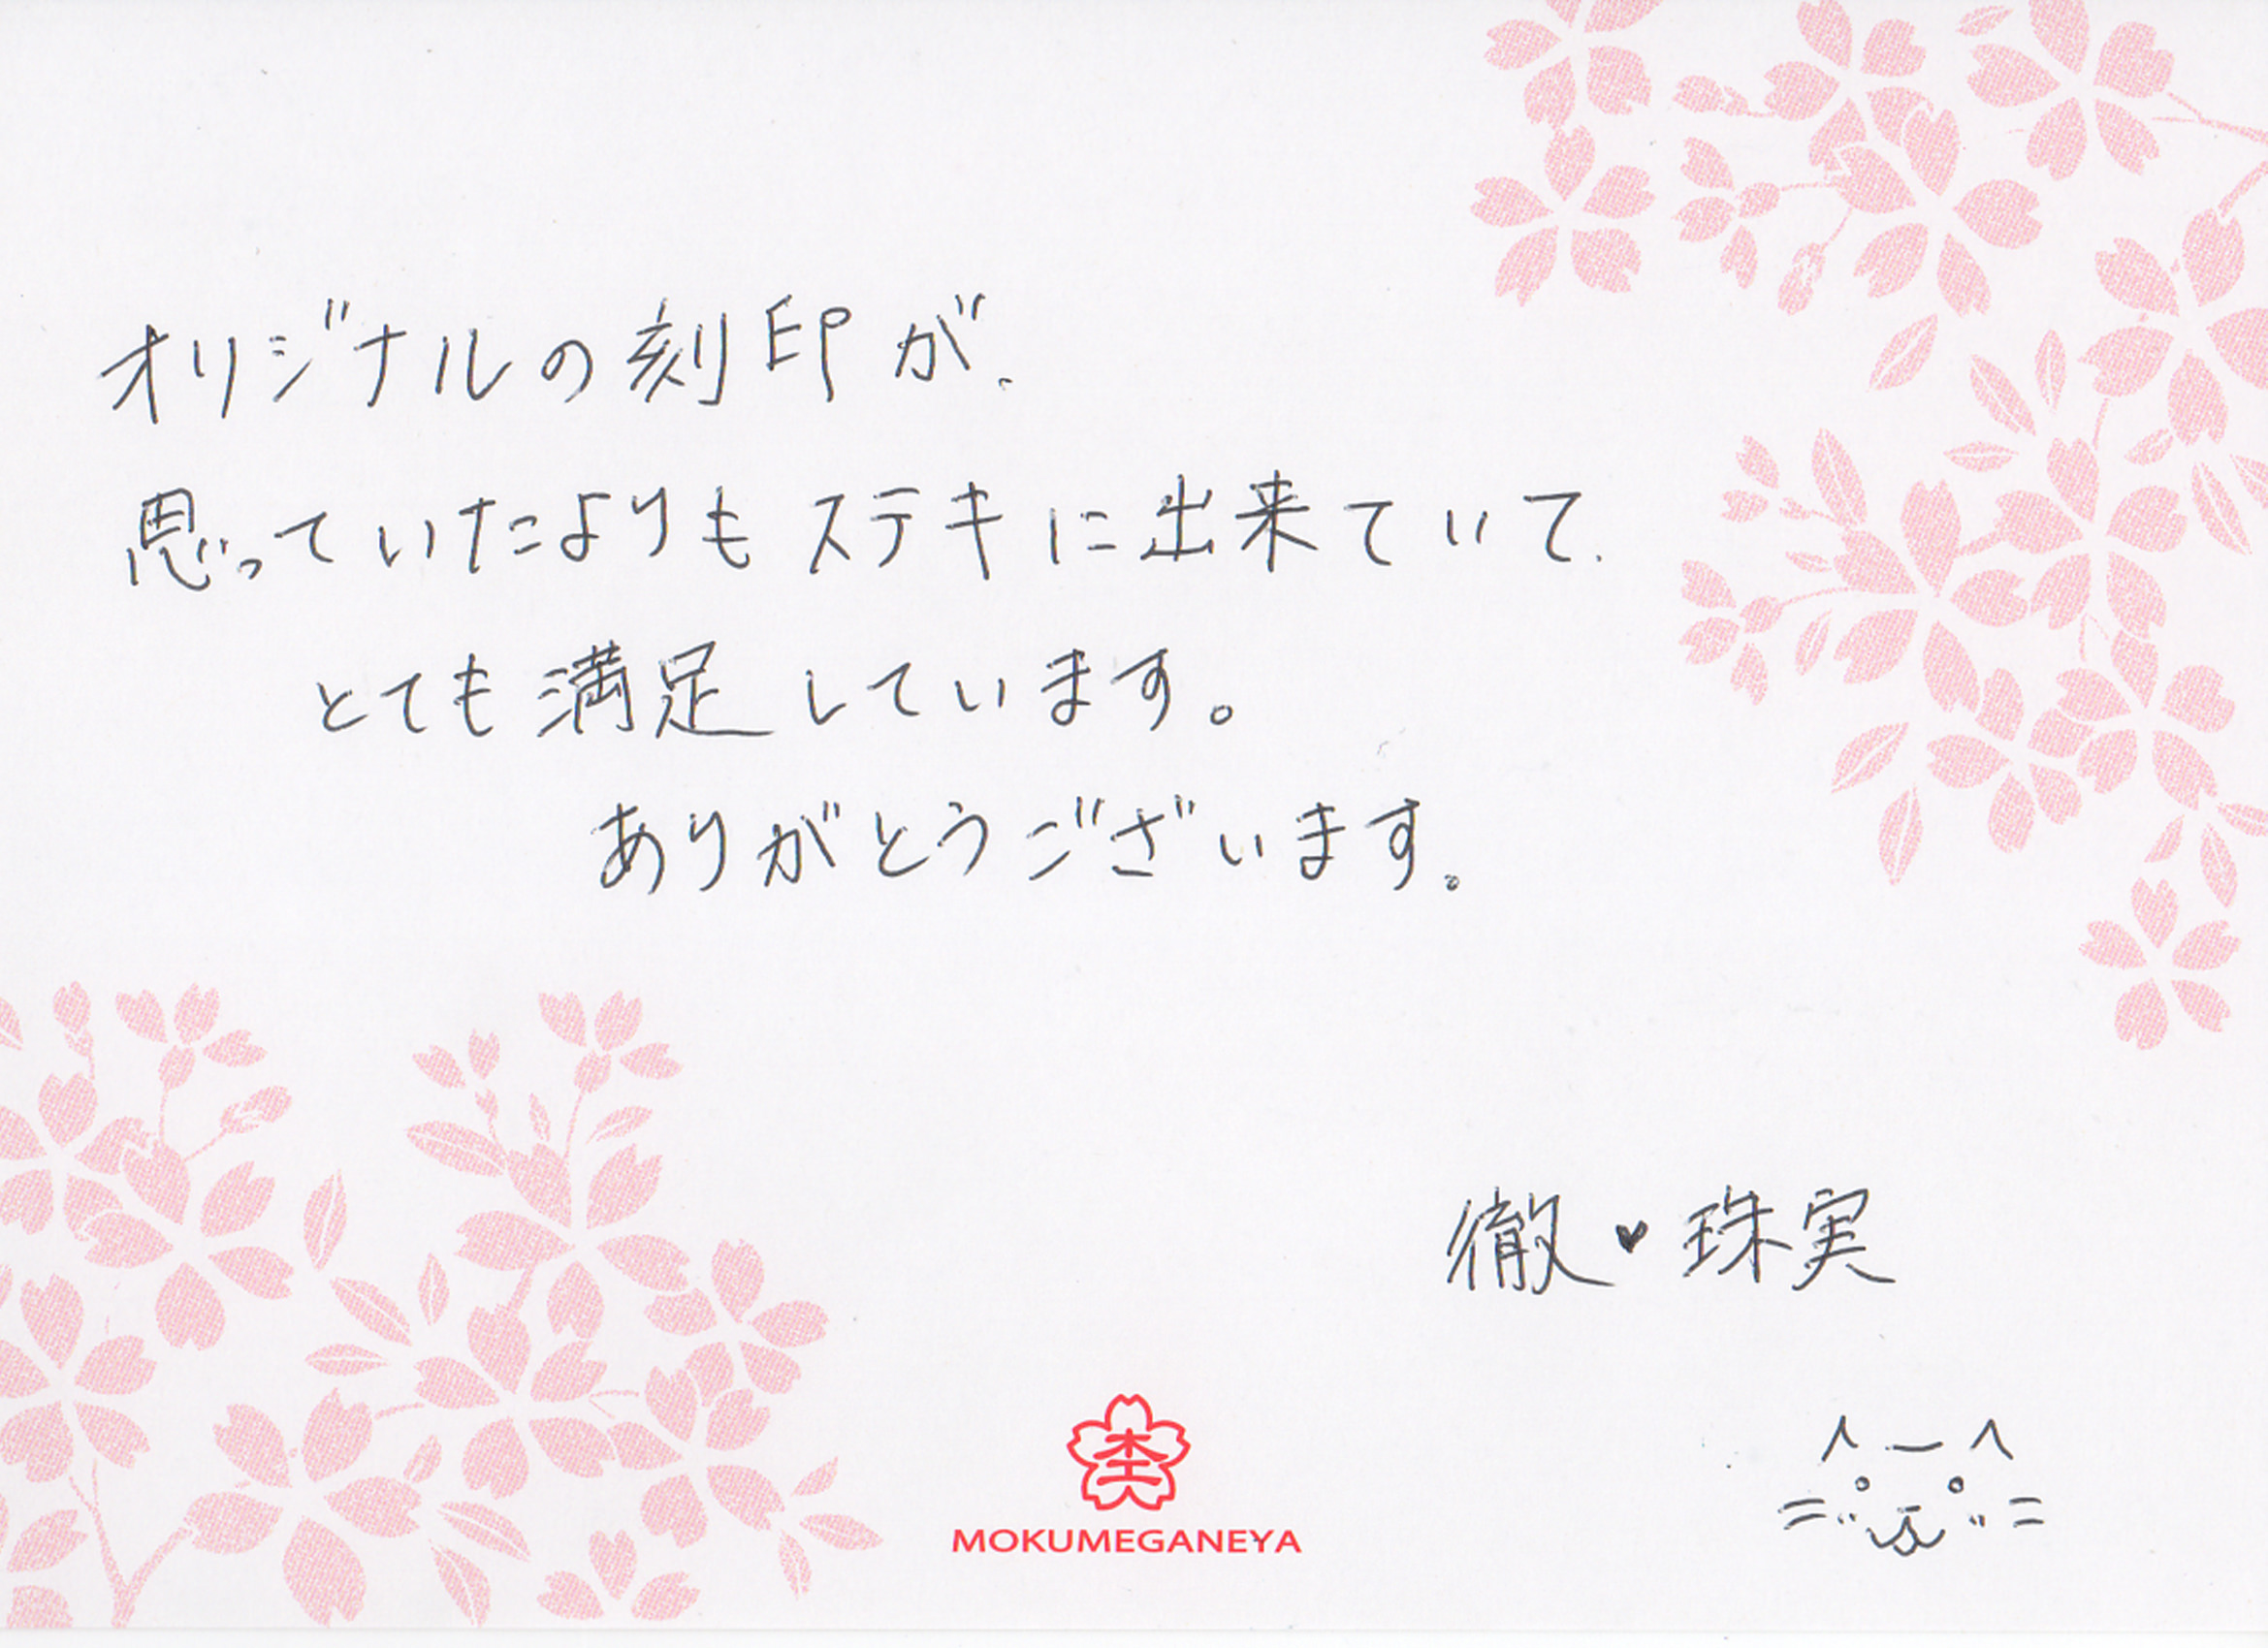 オリジナルの刻印が、
思っていたよりもステキに出来ていて、
とても満足しています。
ありがとうございます。
徹♥珠実
杢
MOKUMEGANEYA